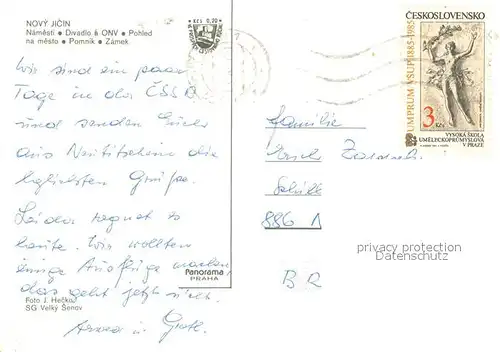 NOVÝ JIČÍN
Náměstí • Divadlo a ONV • Pohled
na město • Pomník • Zámek
KČS 0,20
Wir sind ein paar
Tage in der ČSSR
und senden Euch
aus Neutitschein die
herzlichsten Grüße.
Leider regnet es
heute. Wir wollten
einige Ausflüge machen,
das geht jetzt nicht.
Panorama
PRAHA
Foto J. Hečko
SG Velký Šenov
ČESKOSLOVENSKO
UMPRUM VŠUP 1885-1985
3 Kčs
VYSOKÁ ŠKOLA
UMĚLECKOPRŮMYSLOVÁ
V PRAZE
Familie
886
privacy protection
watermark